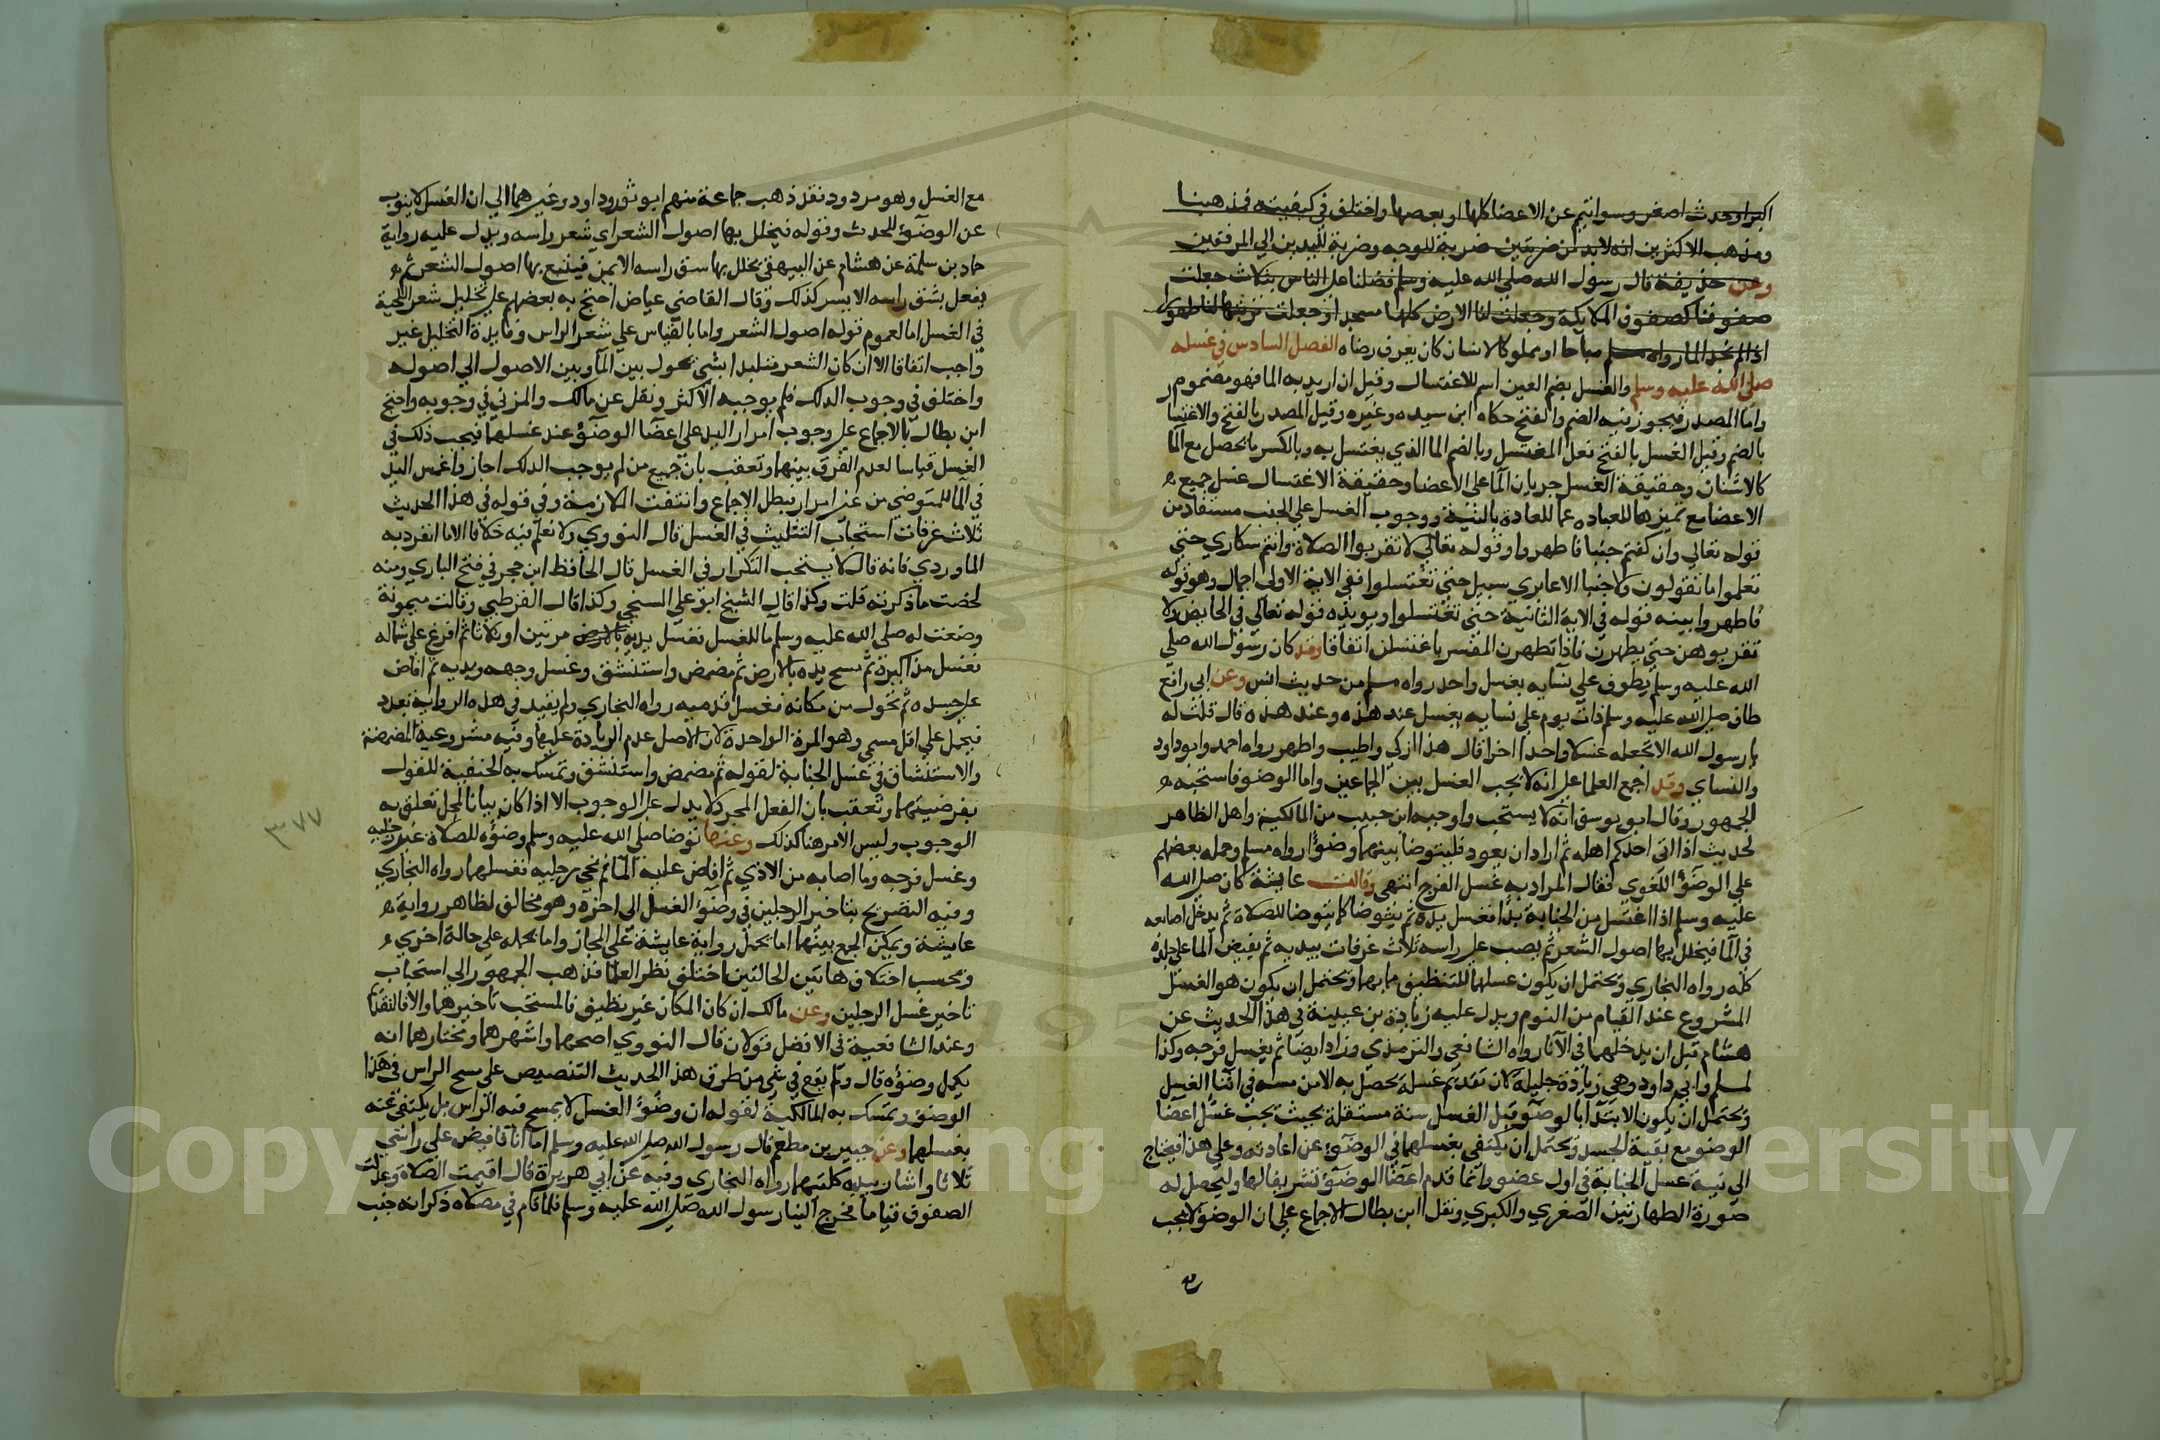 اكبر او حدث اصغر وسوا تيمم عن الاعضا كلها او بعضها واختلف في كيفيته فمذهبنا
ومذهب الاكثرين انه لابد من ضربتين ضربة للوجه وضربة لليدين الي المرفقين
وعن حذيفة قال رسول الله صلي الله عليه وسلم فضلنا علي الناس بثلاث جعلت
صفوفنا كصفوف الملايكة وجعلت لنا الارض كلها مسجدا وجعلت تربتها لنا طهورا
اذا لم نجد الما رواه مسلم مباحا او مملوكا لانسان كان يعرف رضاه الفصل السادس في غسله
صلي الله عليه وسلم والغسل بضم الغين اسم للاغتسال وقيل ان اريد به الما فهو مضموم
واما المصدر فيجوز فيه الضم والفتح حكاه ابن سيده وغيره وقيل المصدر بالفتح والاغتسا
بالضم وقيل الغسل بالفتح فعل المغتسل وبالضم الما الذي يغتسل به وبالكسر ما يحصل مع الما
كالاشنان وحقيقة الغسل جريان الما علي الاعضا وحقيقة الاغتسال غسل جميع
الاعضا مع تميزها للعباده عما للعادة بالنية ووجوب الغسل علي الجنب مستفاد من
قوله تعالي وان كنتم جنبا فاطهروا وقوله تعالي لا تقربوا الصلاة وانتم سكاري حتي
تعلموا ما تقولون ولا جنبا الا عابري سبيل حتي تغتسلوا ففي الاية الاولي اجمال وهو قوله
فاطهروا بينه قوله في الاية الثانية حتي تغتسلوا ويويده قوله تعالي في الحايض ولا
تقربوهن حتي يطهرن فاذا تطهرن المفسر باغتسلن اتفاقا وقد كان رسول الله صلي
الله عليه وسلم يطوف علي نسايه بغسل واحد رواه مسلم من حديث انس وعن ابي رافع
طاف صلي الله عليه وسلم ذات يوم علي نسايه يغتسل عند هذه وعند هذه قال قلت له
يا رسول الله الا تجعله غسلا واحدا اخرا قال هذا ازكي واطيب واطهر رواه احمد وابو داود
والنساي وقد اجمع العلما علي انه لا يجب الغسل بين الجماعين واما الوضو فاستحبه
الجمهور وقال ابو يوسف انه لا يستحب واوجبه ابن حبيب من المالكية واهل الظاهر
لحديث اذا اتي احدكم اهله ثم اراد ان يعود فليتوضا بينهما وضوا رواه مسلم وحمله بعضهم
علي الوضو اللغوي فقال المراد به غسل الفرج انتهي وقالت عايشة كان صلي الله
عليه وسلم اذا اغتسل من الجنابة بدا فغسل يده ثم يتوضا كما يتوضا للصلاة ثم يدخل اصابعه
في الما فيخلل بها اصول الشعر ثم يصب علي راسه ثلاث غرفات بيديه ثم يفيض الما علي جلده
كله رواه البخاري ويحتمل ان يكون غسلهما للتنظيف مما بهما ويحتمل ان يكون هو الغسل
المشروع عند القيام من النوم ويدل عليه زيادة بن عيينة في هذا الحديث عن
هشام قبل ان يدخلهما في الانا رواه الشافعي والترمذي وزاد ايضا ثم يغسل فرجه وكذا
لمسلم وابي داود وهي زيادة جليلة لان تقديم غسله يحصل به الامن من مسه في اثنا الغسل
ويحتمل ان يكون الابتدا بالوضو قبل الغسل سنة مستقلة بحيث يجب غسل اعضا
الوضو مع بقية الجسد ويحتمل ان يكتفي بغسلهما في الوضو عن اعادته وعلي هذا فيحتاج
الي نية غسل الجنابة في اول عضو وانما قدم اعضا الوضو تشريفا لها وليحصل له
صورة الطهارتين الصغري والكبري ونقل ابن بطال الاجماع علي ان الوضو لا يجب
مع الغسل وهو مردود فقد ذهب جماعة منهم ابو ثور وداود وغيرهما الي ان الغسل لا ينوب
عن الوضو للمحدث وقوله فيخلل بها اصول الشعر اي شعر راسه ويدل عليه رواية
حماد بن سلمة عن هشام عن البيهقي يخلل بها شق راسه الايمن فيتتبع بها اصول الشعر ثم
يفعل بشق راسه الايسر كذلك وقال القاضي عياض احتج به بعضهم علي تخليل شعر اللحية
في الغسل اما لعموم قوله اصول الشعر واما بالقياس علي شعر الراس وفايدة التخليل غير
واجب اتفاقا الا ان كان الشعر متلبدا بشي يحول بين الما وبين الاصول الي اصوله
واختلف في وجوب الدلك فلم يوجبه الاكثر ونقل عن مالك والمزني في وجوبه واحتج
ابن بطال بالاجماع علي وجوب امرار اليد علي اعضا الوضو عند غسلهما فيجب ذلك في
الغسل قياسا لعدم الفرق بينهما وتعقب بان جميع من لم يوجب الدلك اجازوا غمس اليد
في الما للمتوضي من غير امرار فبطل الاجماع وانتفت الملازمة وفي قوله في هذا الحديث
ثلاث غرفات استحباب التثليث في الغسل قال النووي ولا نعلم فيه خلافا الا ما انفرد به
الماوردي فانه قال لا يستحب التكرار في الغسل قال الحافظ ابن حجر في فتح الباري ومنه
لخصت ما ذكرته قلت وكذا قال الشيخ ابو علي السنجي وكذا قال القرطبي وقالت ميمونة
وضعت له صلي الله عليه وسلم ما للغسل فغسل يديه بالارض مرتين او ثلاثا ثم افرغ علي شماله
فغسل مذاكيره ثم مسح يده بالارض ثم مضمض واستنشق وغسل وجهه ويديه ثم افاض
علي جسده ثم تحول من مكانه فغسل قدميه رواه البخاري ولم يقيد في هذه الرواية بعدد
فيحمل علي اقل مسمي وهو المرة الواحدة لان الاصل عدم الزيادة عليها وفيه مشروعية المضمضة
والاستنشاق في غسل الجنابة لقوله ثم مضمض واستنشق وتمسك به الحنفية للقول
بفرضيتهما وتعقب بان الفعل المجرد لا يدل علي الوجوب الا اذا كان بيانا لمجمل تعلق به
الوجوب وليس الامر هنا كذلك وعنها توضا صلي الله عليه وسلم وضوه للصلاة غير رجليه
وغسل فرجه وما اصابه من الاذي ثم افاض عليه الما ثم نحي رجليه فغسلهما رواه البخاري
وفيه التصريح بتاخير الرجلين في وضو الغسل الي اخره وهو مخالف لظاهر رواية
عايشة ويمكن الجمع بينهما اما بحمل رواية عايشة علي المجاز واما بحمله علي حالة اخري
وبحسب اختلاف هاتين الحالتين اختلف نظر العلما فذهب الجمهور الي استحباب
تاخير غسل الرجلين وعن مالك ان كان المكان غير نظيف فالمستحب تاخيرهما والا فالتقديم
وعند الشافعية في الافضل قولان قال النووي اصحهما واشهرهما ومختارهما انه
يكمل وضوه قال ولم يقع في شي من طرق هذا الحديث التنصيص علي مسح الراس في هذا
الوضو وتمسك به المالكية لقولهم ان وضو الغسل لا يمسح فيه الراس بل يكتفي عنه
بغسلهما وعن جبير بن مطعم قال رسول الله صلي الله عليه وسلم اما انا فافيض علي راسي
ثلاثا واشار بيديه كلتيهما رواه البخاري وفيه عن ابي هريرة قال اقيمت الصلاة وعدلت
الصفوف قياما فخرج الينا رسول الله صلي الله عليه وسلم فلما قام في مصلاه ذكر انه جنب
٣٧٧